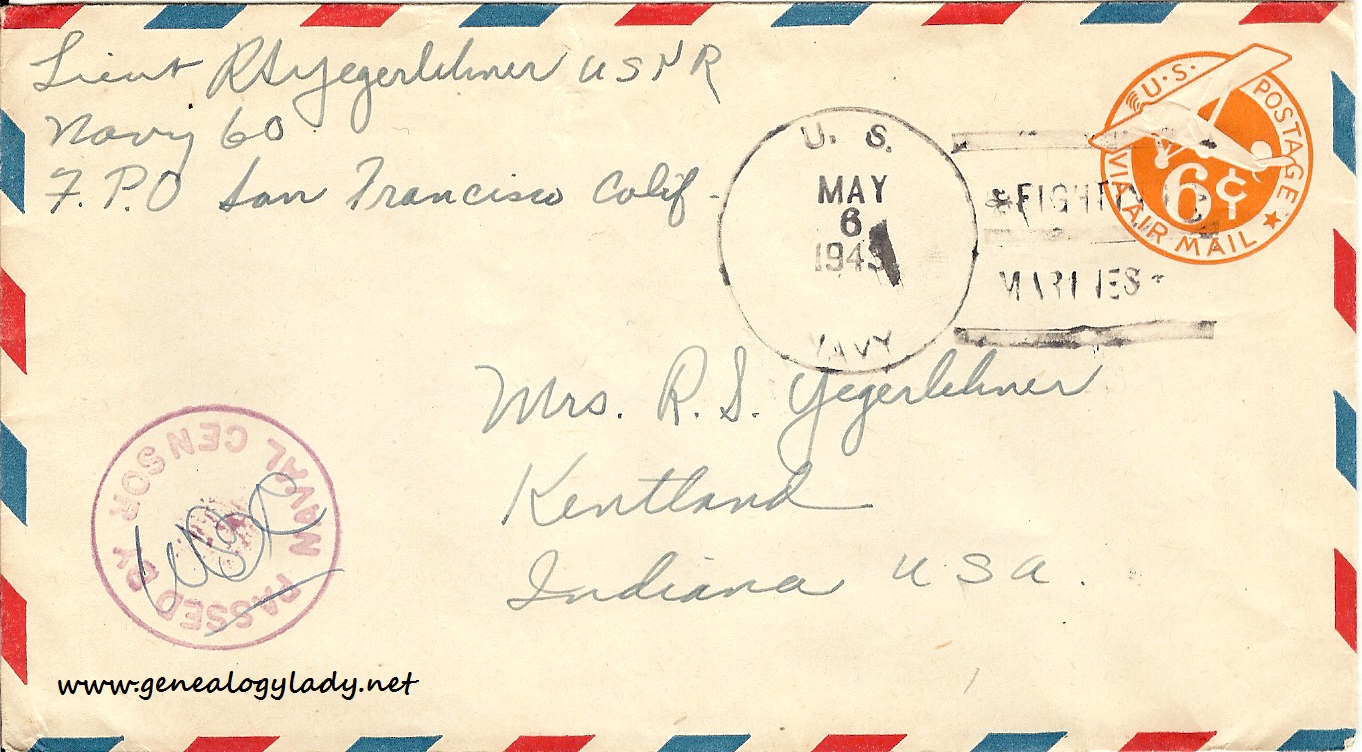 Lieut R S Yegerlehner USNR
Navy 60
F.P.O San Francisco Calif -
U. S.
MAY
6
1943
NAVY
FIGHTING
MARINES
U.S. POSTAGE
6¢
VIA AIR MAIL
Mrs. R. S. Yegerlehner
Kentland
Indiana USA.
PASSED BY NAVAL CENSOR
www.genealogylady.net